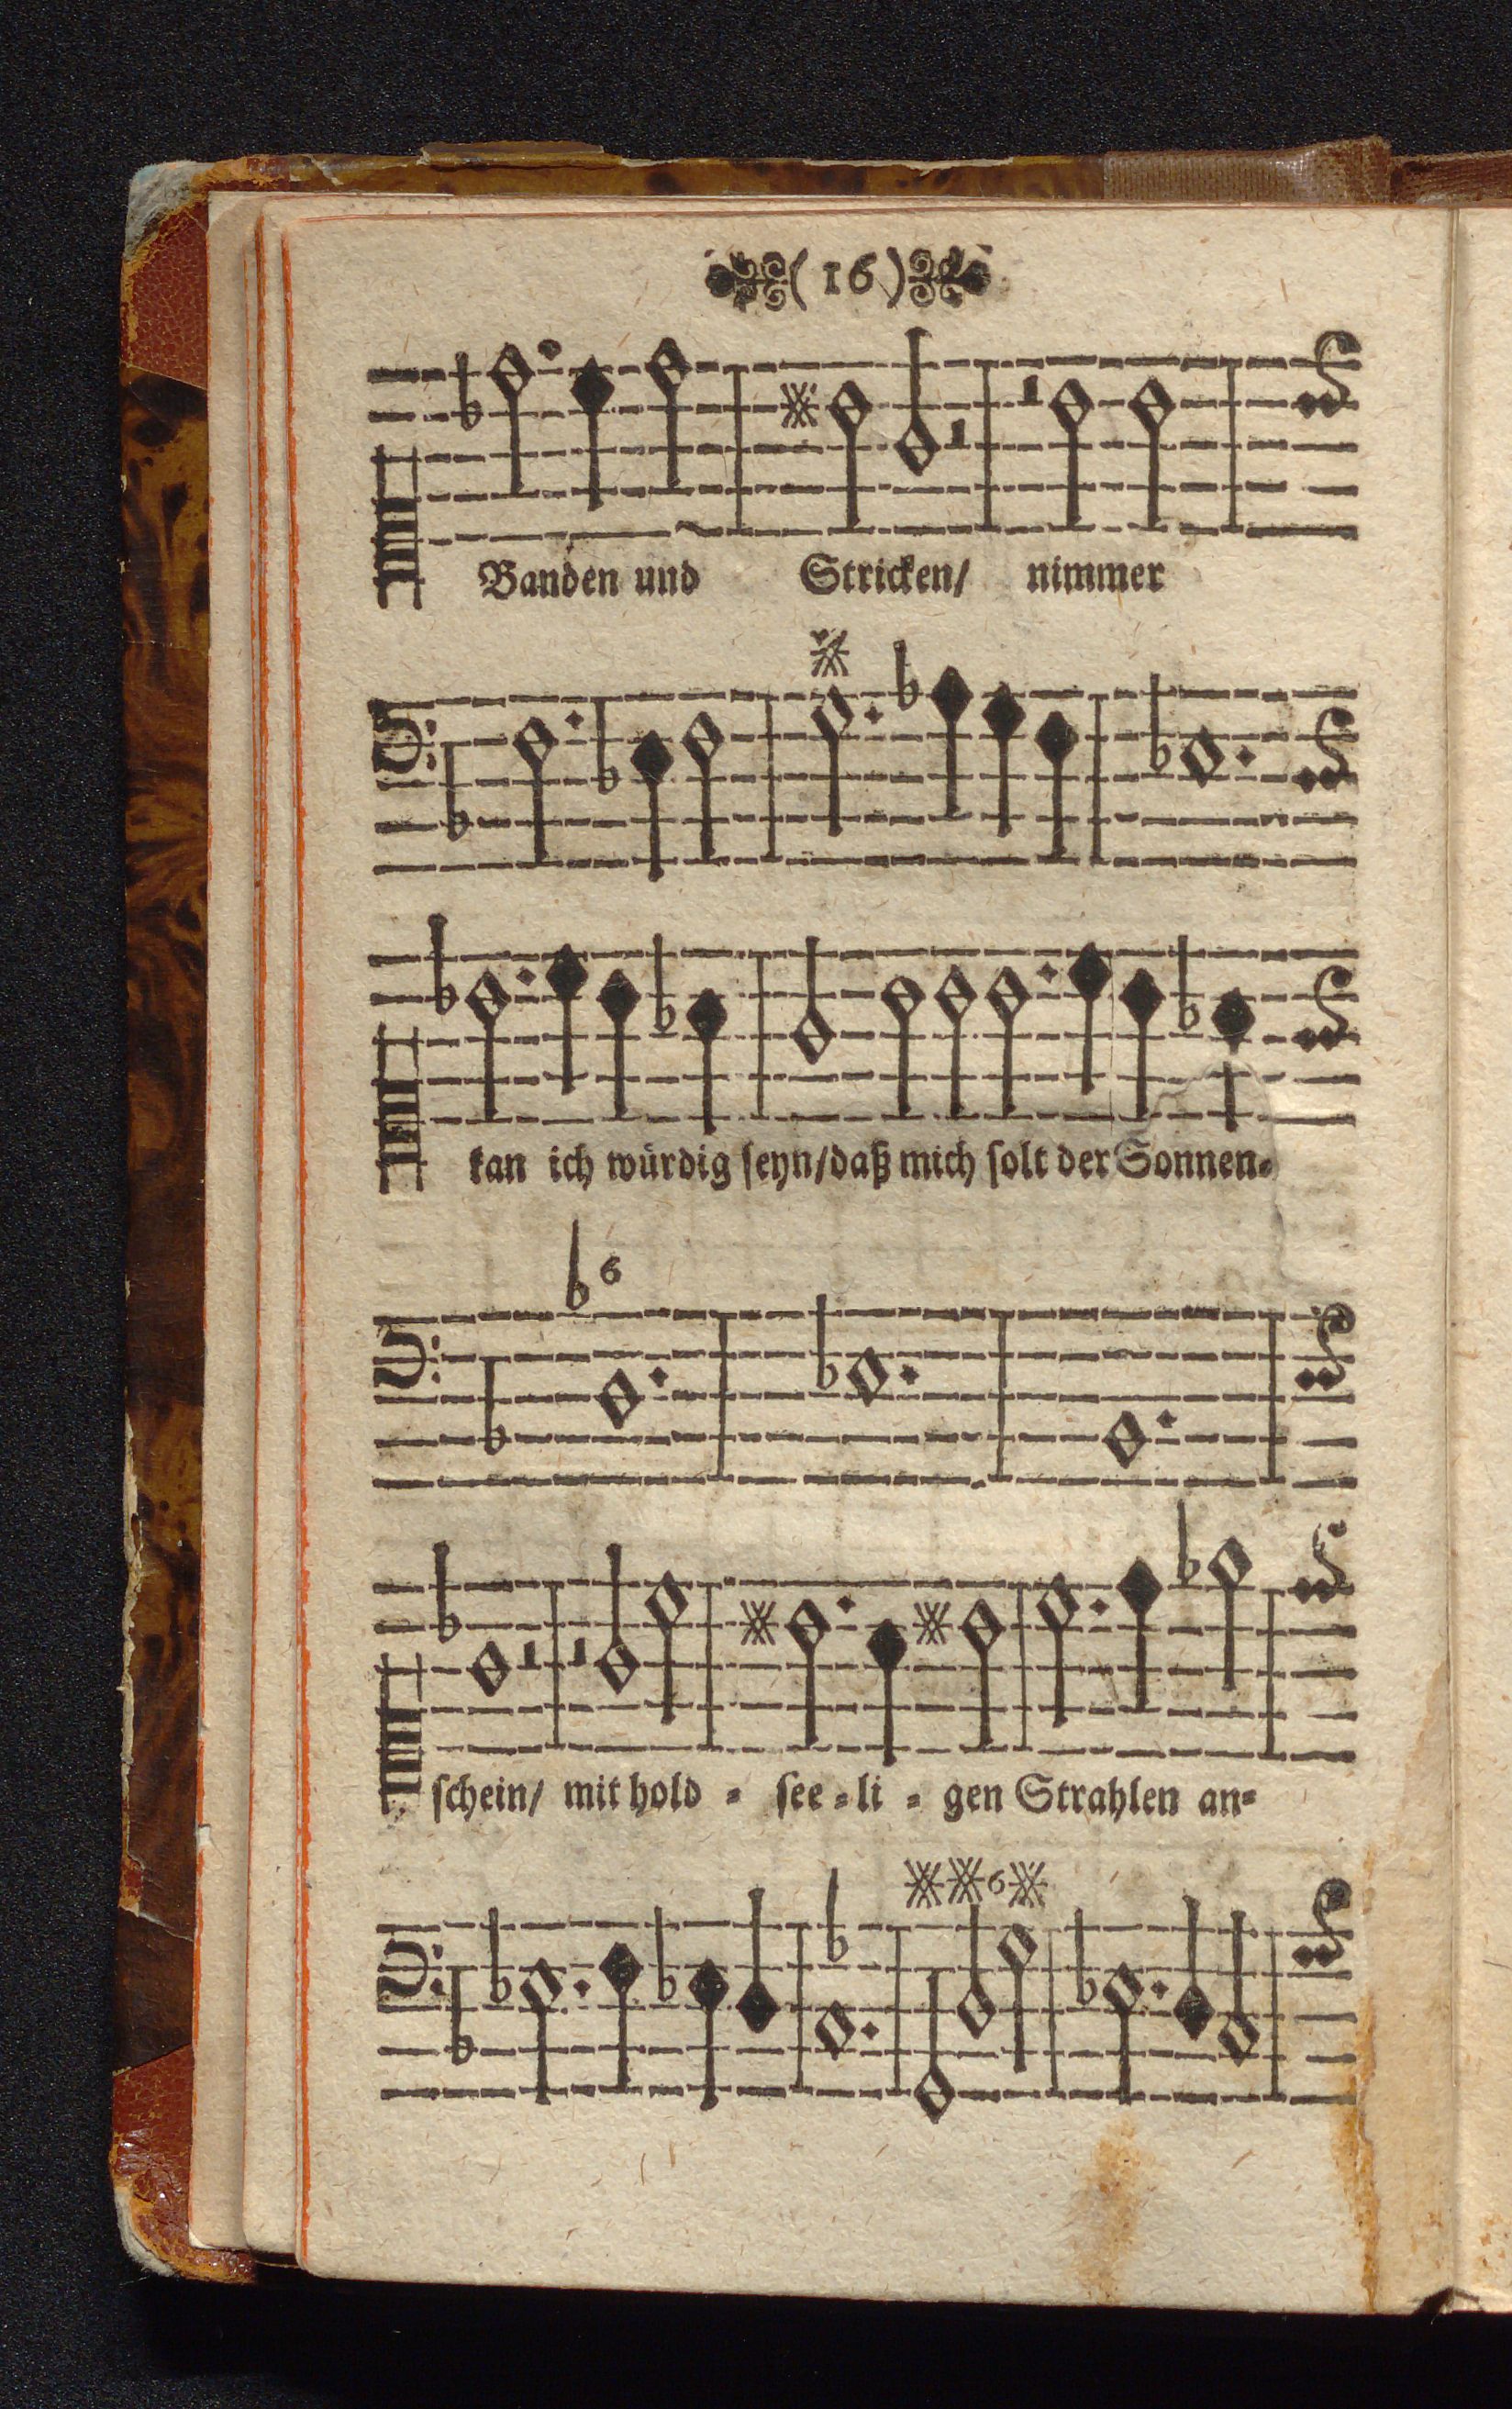 (16)
Banden und Stricken/ nimmer
kan ich würdig seyn/daß mich solt der Sonnen⸗
6
schein/ mit hold ⸗ see ⸗ li ⸗ gen Strahlen an⸗
6